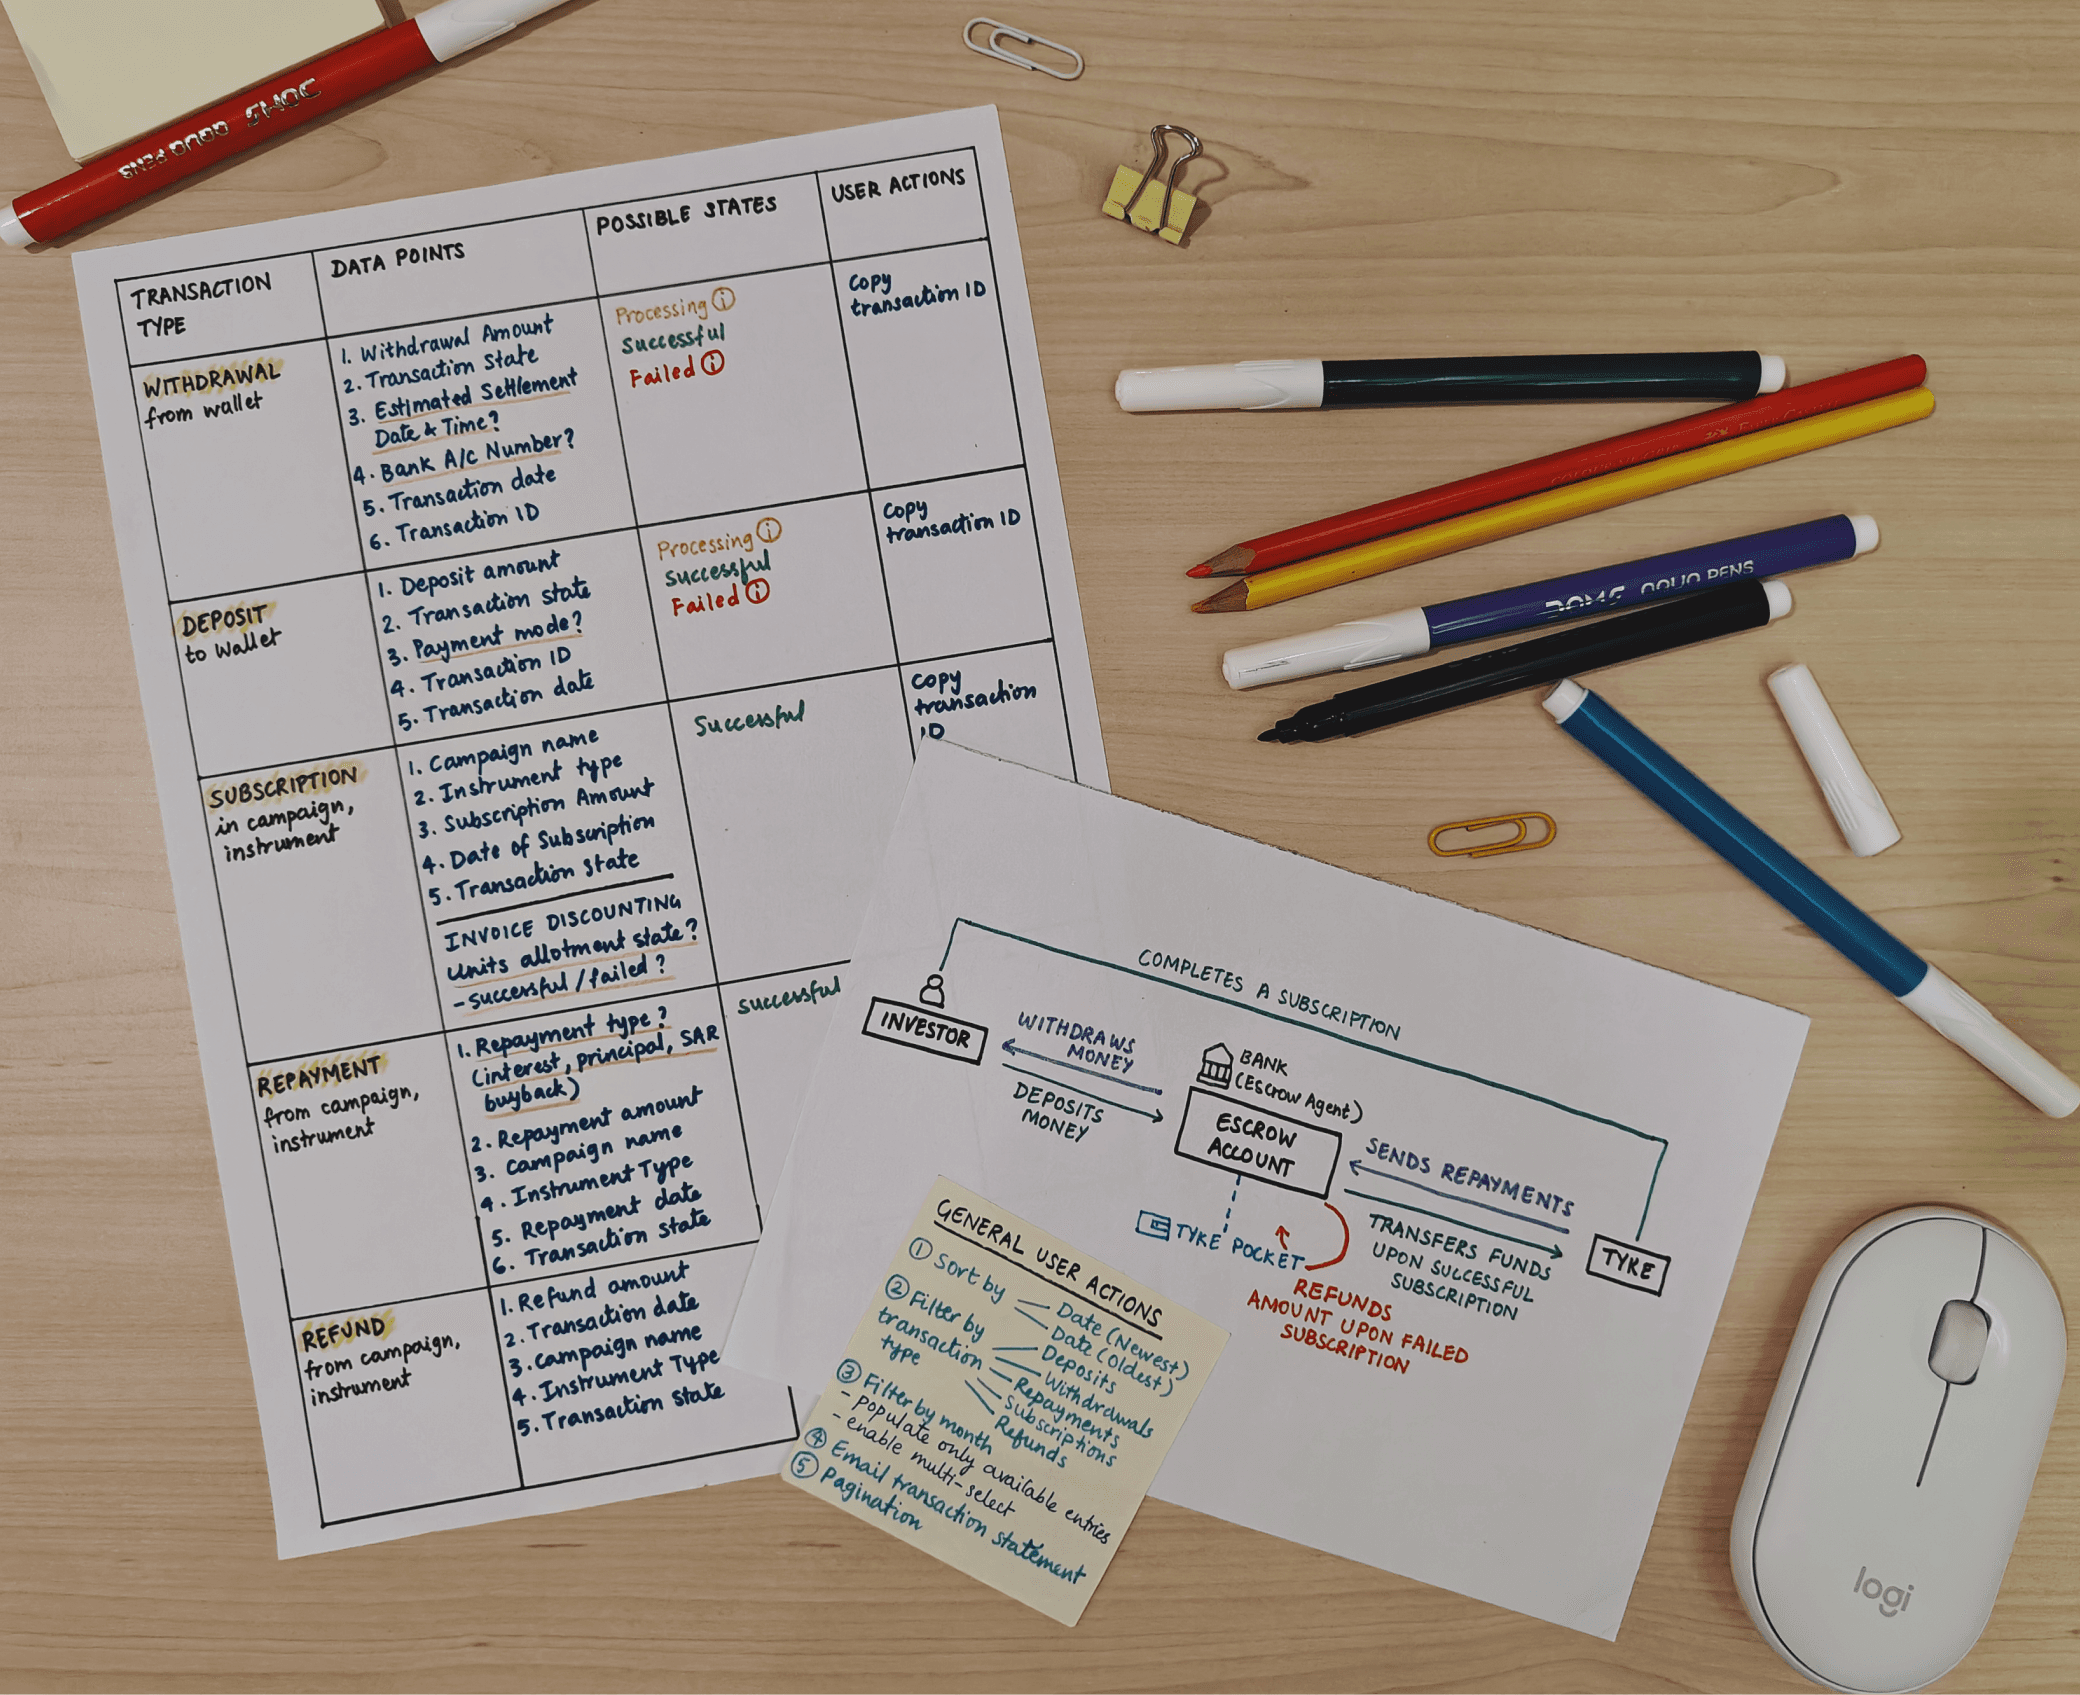 DOMS AQUA PENS
TRANSACTION
TYPE
DATA POINTS
POSSIBLE STATES
USER ACTIONS
WITHDRAWAL
from wallet
1. Withdrawal Amount
2. Transaction State
3. Estimated Settlement
Date & Time?
4. Bank A/C Number?
5. Transaction date
6. Transaction ID
Processing i
Successful
Failed i
Copy
transaction ID
DEPOSIT
to wallet
1. Deposit amount
2. Transaction state
3. Payment mode?
4. Transaction ID
5. Transaction date
Processing i
Successful
Failed i
Copy
transaction ID
SUBSCRIPTION
in campaign,
instrument
1. Campaign name
2. Instrument type
3. Subscription Amount
4. Date of Subscription
5. Transaction State
INVOICE DISCOUNTING
Units allotment state?
- successful/failed?
Successful
Copy
transaction
ID
REPAYMENT
from campaign,
instrument
1. Repayment type?
(interest, principal, SAR
buyback)
2. Repayment amount
3. Campaign name
4. Instrument Type
5. Repayment date
6. Transaction state
successful
REFUND
from campaign,
instrument
1. Refund amount
2. Transaction date
3. Campaign name
4. Instrument Type
5. Transaction state
COMPLETES A SUBSCRIPTION
INVESTOR
WITHDRAWS
MONEY
DEPOSITS
MONEY
BANK
(Escrow Agent)
ESCROW
ACCOUNT
SENDS REPAYMENTS
TRANSFERS FUNDS
UPON SUCCESSFUL
SUBSCRIPTION
TYKE
TYKE POCKET
REFUNDS
AMOUNT UPON FAILED
SUBSCRIPTION
GENERAL USER ACTIONS
1 Sort by
Date (Newest)
Date (oldest)
2 Filter by
transaction
type
Deposits
Withdrawals
Repayments
Subscriptions
Refunds
3 Filter by month
- populate only available entries
- enable multi-select
4 Email transaction statement
5 Pagination
DOMS AQUA PENS
logi